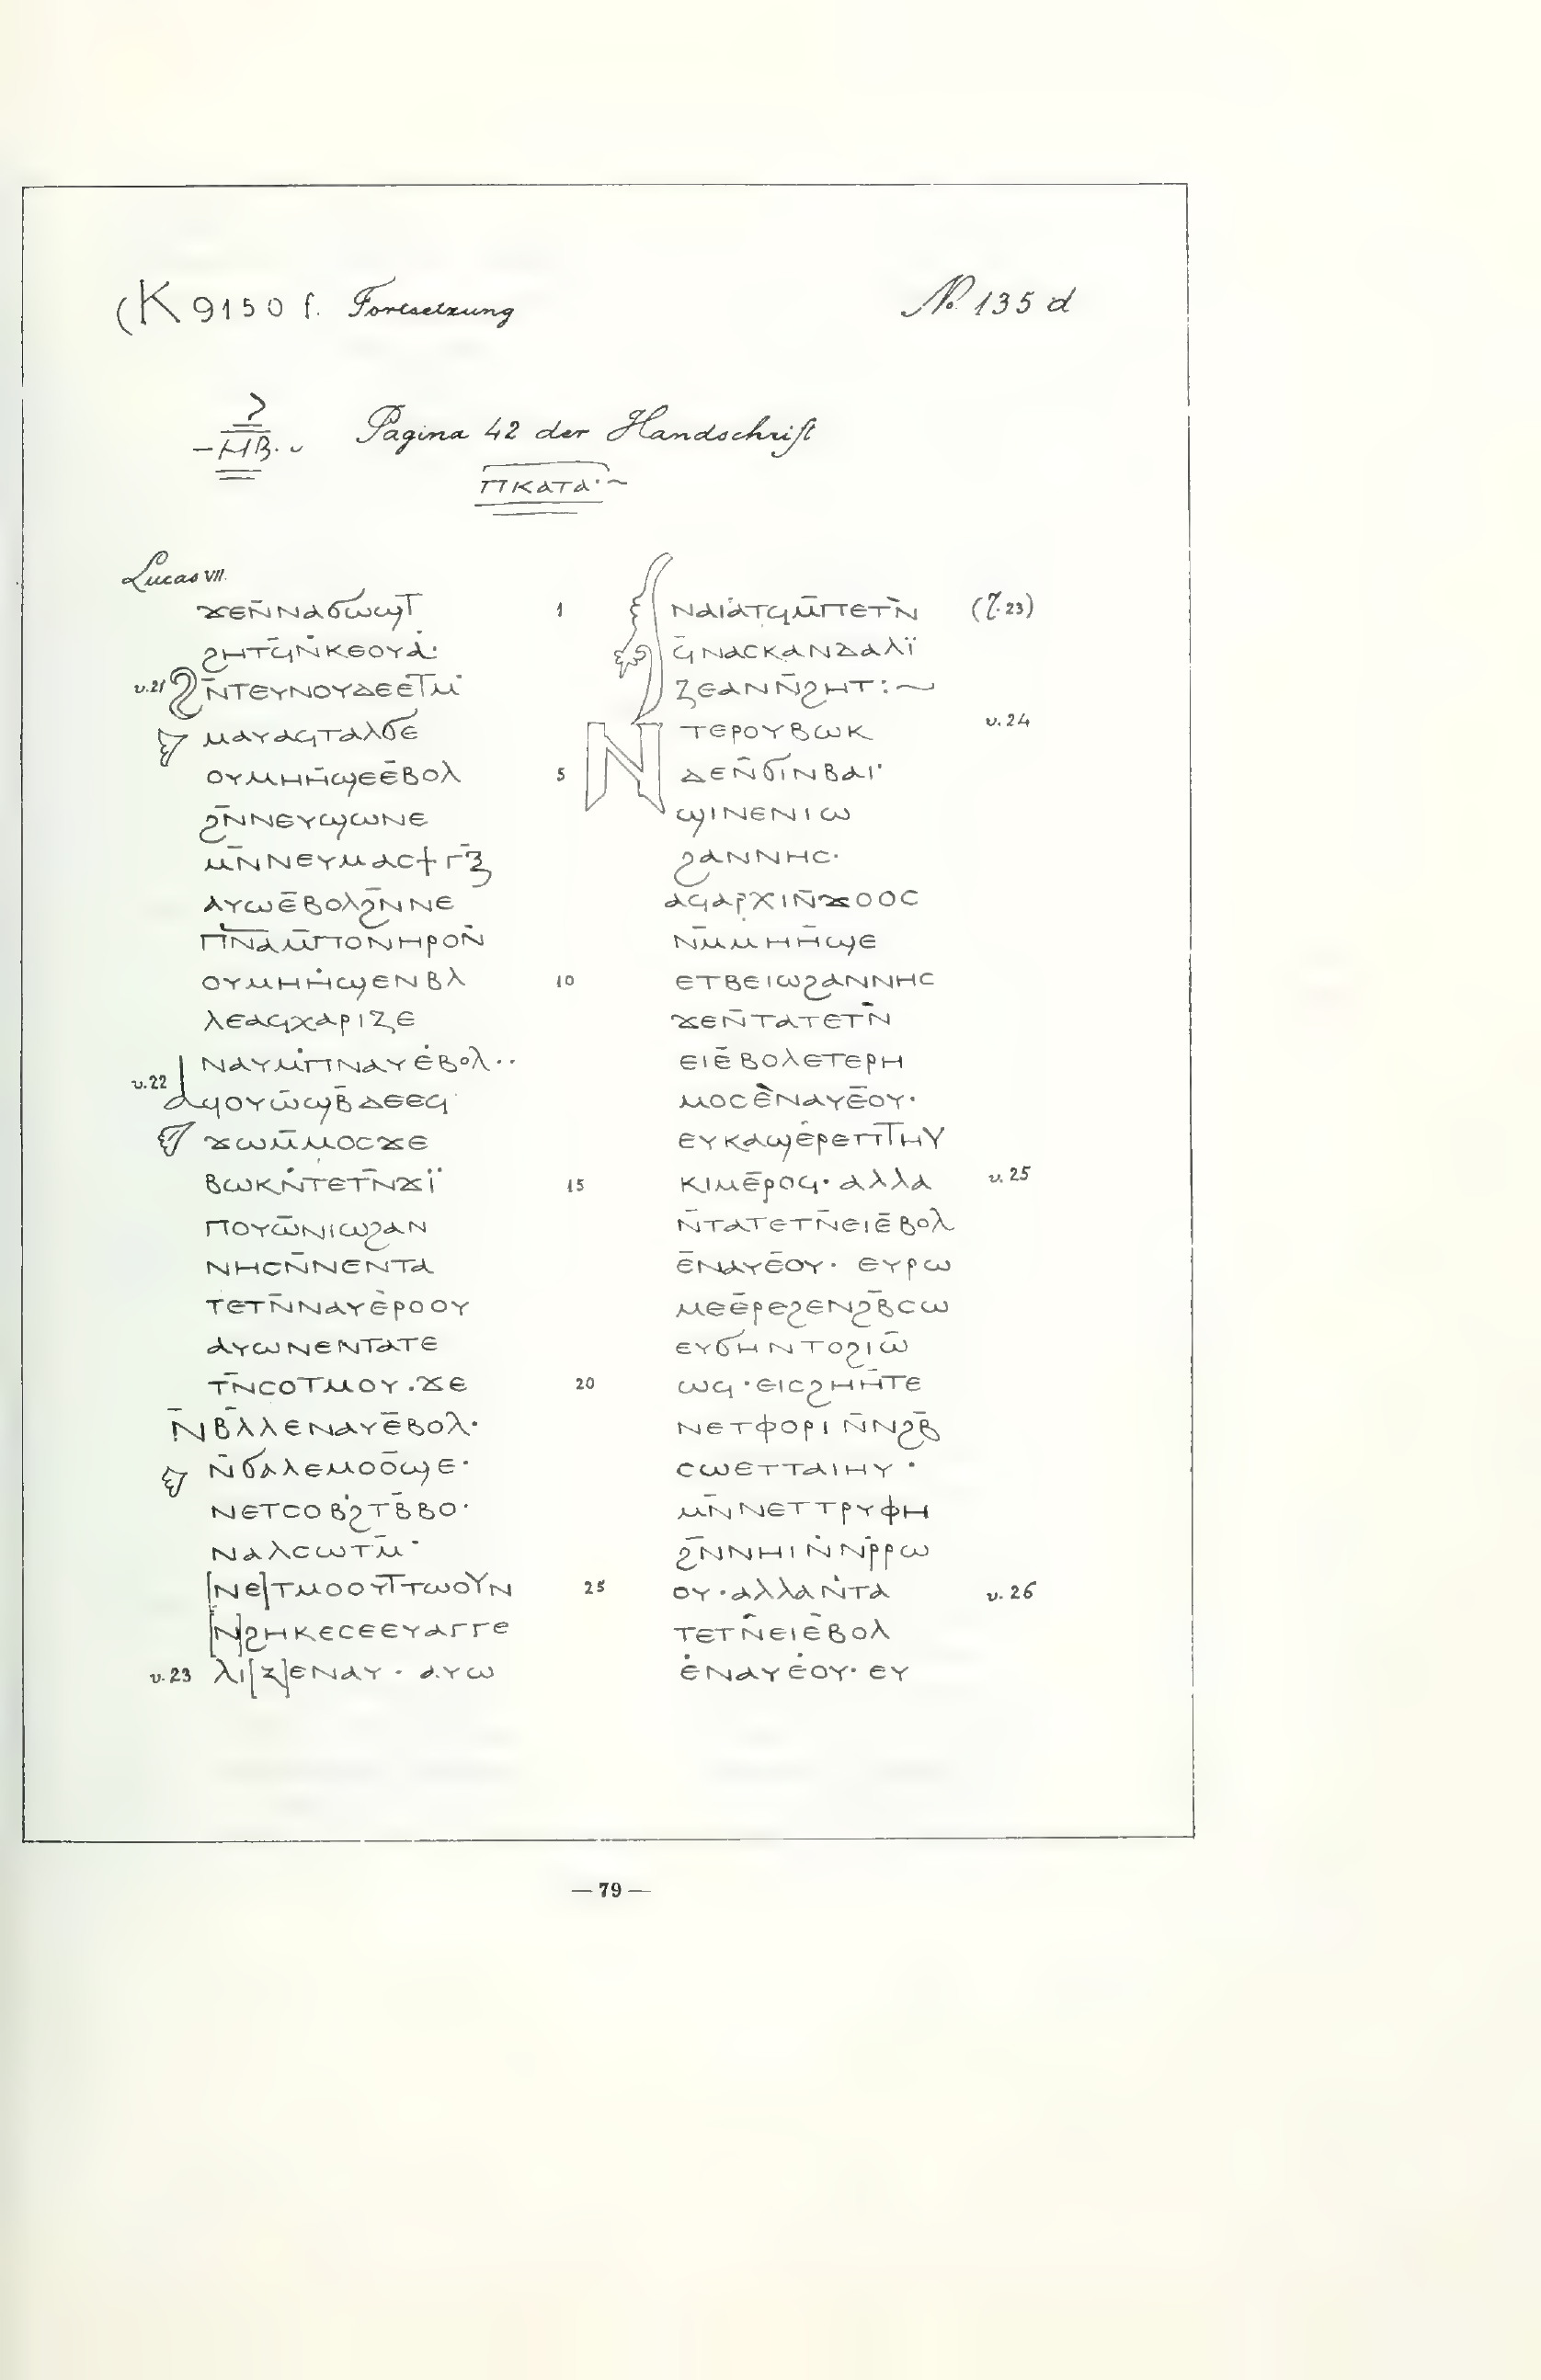 (K 9150 f. Fortsetzung
No. 135 d
?
–ⲙⲃ. Pagina 42 der Handschrift
ⲡⲕⲁⲧⲁ·~
Lucas VII.
ϫⲉⲛ̄ⲛⲁϭⲱϣⲧ
ϩⲏⲧϥ̄ⲛ̄ⲕⲉⲟⲩⲁ·
v.21 ϩⲛ̄ⲧⲉⲩⲛⲟⲩⲇⲉⲉⲧⲙ̄
ⲙⲁⲩⲁϥⲧⲁⲗϭⲉ
ⲟⲩⲙⲏⲏ̄ϣⲉⲉ̄ⲃⲟⲗ
ϩⲛ̄ⲛⲉⲩϣⲱⲛⲉ
ⲙⲛ̄ⲛⲉⲩⲙⲁⲥϯⲅⲝ̄
ⲁⲩⲱⲉ̄ⲃⲟⲗϩⲛ̄ⲛⲉ
ⲡ̅ⲛ̅ⲁ̅ⲙ̄ⲡⲟⲛⲏⲣⲟⲛ̄
ⲟⲩⲙⲏⲏ̇ϣⲉⲛⲃⲗ̄
ⲗⲉⲁϥⲭⲁⲣⲓⲍⲉ
ⲛⲁⲩⲙ̇ⲡⲛⲁⲩⲉ̇ⲃⲟⲗ··
v.22 ⲁϥⲟⲩⲱ̄ϣⲃ̄ⲇⲉⲉϥ
ϫⲱⲙ̄ⲙⲟⲥϫⲉ
ⲃⲱⲕⲛ̇ⲧⲉⲧⲛ̄ϫⲓ̈
ⲡⲟⲩⲱ̄ⲛⲓⲱϩⲁⲛ
ⲛⲏⲥⲛ̄ⲛⲉⲛⲧⲁ
ⲧⲉⲧⲛ̄ⲛⲁⲩⲉ̀ⲣⲟⲟⲩ
ⲁⲩⲱⲛⲉⲛⲧⲁⲧⲉ
ⲧⲛ̄ⲥⲟⲧⲙⲟⲩ.ϫⲉ
ⲛ̄ⲃⲗ̄ⲗⲉⲛⲁⲩⲉ̄ⲃⲟⲗ·
ⲛ̄ϭⲁⲗⲉⲙⲟⲟ̄ϣⲉ·
ⲛⲉⲧⲥⲟⲃϩ̇ⲧⲃ̄ⲃⲟ·
ⲛⲁⲗⲥⲱⲧⲙ̄·
[ⲛⲉ]ⲧⲙⲟⲟⲩⲧⲧⲱⲟⲩⲛ
[ⲛ]ϩⲏⲕⲉⲥⲉⲉⲩⲁⲅⲅⲉ
v.23 ⲗⲓ[ⲍ]ⲉⲛⲁⲩ· ⲁⲩⲱ
1
5
10
15
20
25
ⲛⲁⲓ̈ⲁⲧϥⲙ̄ⲡⲉⲧⲛ̀ (7.23)
ϥ̄ⲛⲁⲥⲕⲁⲛⲇⲁⲗⲓ̈
ⲍⲉⲁⲛⲛ̄ϩⲏⲧ:~
ⲛⲧⲉⲣⲟⲩⲃⲱⲕ v.24
ⲇⲉⲛ̄ϭⲓⲛⲃⲁⲓ·
ϣⲓⲛⲉⲛⲓⲱ
ϩⲁⲛⲛⲏⲥ·
ⲁϥⲁⲣⲭⲓⲛ̄ϫⲟⲟⲥ
ⲛ̄ⲙⲙⲏⲏ̄ϣⲉ
ⲉⲧⲃⲉⲓⲱϩⲁⲛⲛⲏⲥ
ϫⲉⲛ̄ⲧⲁⲧⲉⲧⲛ̀
ⲉⲓⲉ̄ⲃⲟⲗⲉⲧⲉⲣⲏ
ⲙⲟⲥⲉ̀ⲛⲁⲩⲉ̄ⲟⲩ·
ⲉⲩⲕⲁϣⲉ̇ⲣⲉⲡⲧⲏⲩ
ⲕⲓⲙⲉ̄ⲣⲟϥ·ⲁⲗⲗⲁ v.25
ⲛ̄ⲧⲁⲧⲉⲧⲛ̄ⲉⲓⲉ̄ⲃⲟⲗ
ⲉ̄ⲛⲁⲩⲉ̄ⲟⲩ· ⲉⲩⲣⲱ
ⲙⲉⲉ̄ⲣⲉϩⲉⲛϩⲃ̄ⲥⲱ
ⲉⲩϭⲏⲛⲧⲟϩⲓⲱ̄
ⲱϥ·ⲉⲓⲥϩⲏⲏ̄ⲧⲉ
ⲛⲉⲧⲫⲟⲣⲓⲛ̄ⲛϩⲃ̄
ⲥⲱⲉⲧⲧⲁⲓⲏⲩ·
ⲙⲛ̄ⲛⲉⲧⲧⲣⲩⲫⲏ
ϩⲛ̄ⲛⲏⲓⲛ̇ⲛⲣ̄ⲣⲱ
ⲟⲩ·ⲁⲗⲗⲁⲛ̇ⲧⲁ v.26
ⲧⲉⲧⲛ̄ⲉⲓⲉ̄ⲃⲟⲗ
ⲉ̇ⲛⲁⲩⲉ̇ⲟⲩ·ⲉⲩ
— 79 —